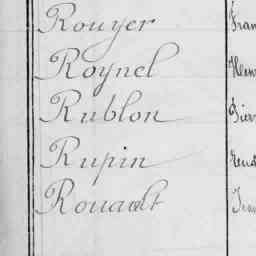 Rouyer
Roynel
Rublon
Rupin
Rouault